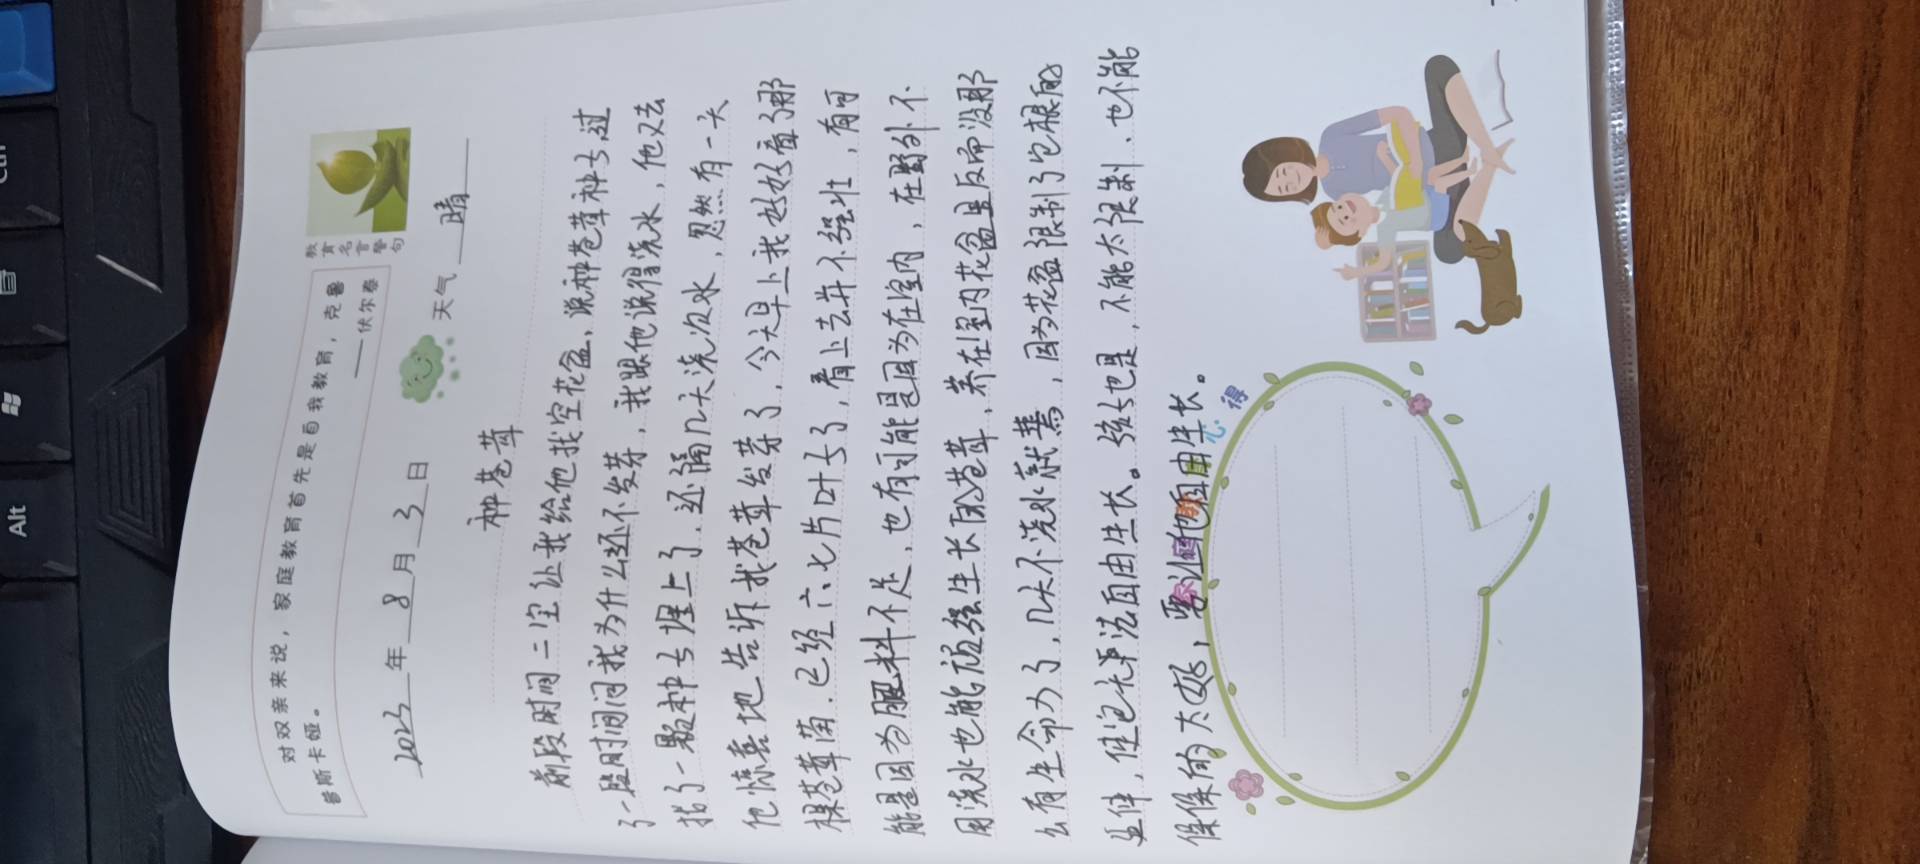 对双亲来说，家庭教育首先是自我教育，克鲁
普斯卡娅。
——伏尔泰
教育名言警句
2023年8月3日 天气 晴
种苍茸
前段时间二宝让我给他找空花盆、说种苍茸种子,过
了一段时间问我为什么还不发芽，我跟他说得浇水，他又去
找了一颗种子埋上了，还隔几天浇次水，忽然有一天
他惊喜地告诉我苍茸发芽了，今天早上我好好看了那
棵苍茸苗.已经六、七片叶子了，看上去并不强壮，有可
能是因为肥料不足，也有可能是因为在室内，在野外不
用浇水也能顽强生长的苍茸，养在室内花盆里反而没那
么有生命力了，几天不浇水就蔫，因为花盆限制了它根的
延伸，使它无法自由生长。孩子也是，不能太限制、也不能
保保的太好，要让他自由生长。
家庭教育心得
Ctrl
Alt